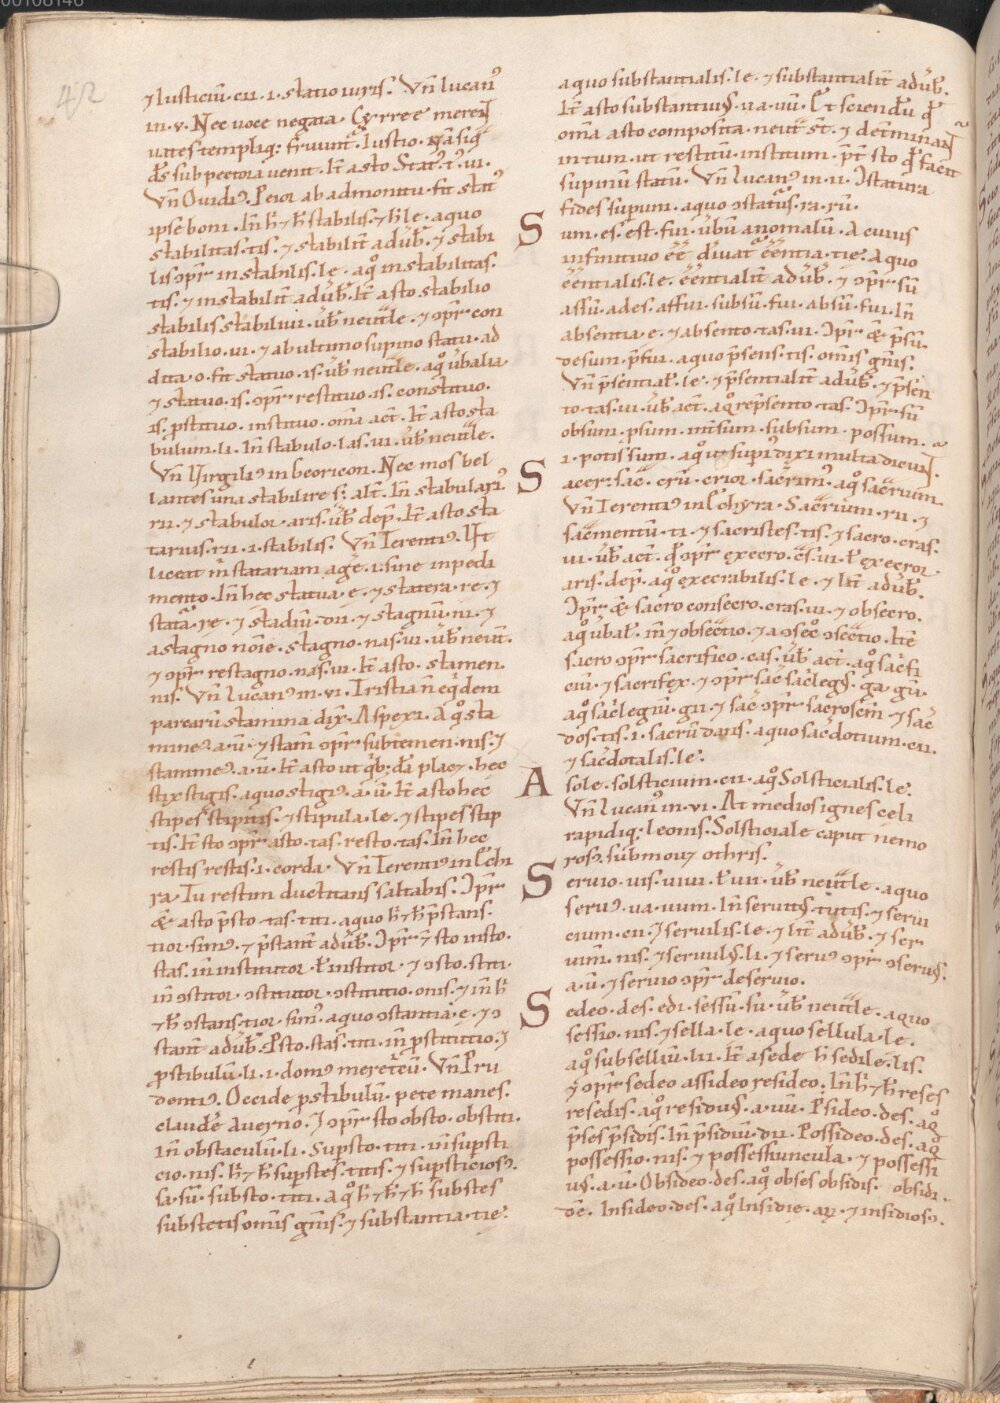 00108146
42
⁊ Iusticiū·cii·i·statio iuris· Vn̄ lucan᷒
in·v· Nec uoce negata· Cyrręę meren̄t
uates templiq;: fruunt᷒· Iustio· nā siq̄
d̄s sub pectora uenit· It̄ a sto Stat᷒·t᷒·ui·
Vn̄ Ouidi᷒· Peior ab admonitu· fit stat᷒
ipse boni· In̄ h̄ ⁊ h̄ stabilis· ⁊ h̄ le· aquo
stabilitas·tis· ⁊ stabilit̄ adūb̄· ⁊ stabi
lis ɔpr̄ instabilis·le· aq̊ instabilitas·
tis· ⁊ instabilit̄ adūb̄· It̄ a sto stabilio
stabilis·stabiliui· ūb̄ neut̄le· ⁊ ɔpr̄ con
stabilio·ui· ⁊ ab ultimo supino statu· ad
dita·o· fit statuo·is· ūb̄ neut̄le· aq̊ ūbalia
⁊ statuo·is· ɔpr̄ restituo·is· constituo·
is· ꝓstituo· instituo· om̄a act̄· It̄ a sto sta
bulum·li· In̄ stabulo·las·ui· ūb̄ neut̄le·
Vn̄ Virgili᷒ in beoricon· Nec mos bel
lantes una stabilire s;· alt̄· In̄ stabulari᷒
rii· ⁊ stabulor·aris· ūb̄ dep̄· It̄ a sto sta
tarius·rii·i·stabilis· Vn̄ Terenti᷒· Ut
liceat m̄ statariam agē·i·sine inpedi
mento· In̄ hec statua·e· ⁊ statera·rę· ⁊
stat᷒a·rę· ⁊ stadiū·dii· ⁊ stagnū·ni· ⁊
a stagno nōie· stagno·nas·ui· ūb̄ neut̄·
⁊ ɔpr̄ restagno·nas·ui· It̄ a sto· stamen·
nis· Vn̄ lucan᷒ in·vi· Tristia n̄ eq̄dem
parcarū stamina dix̄· Aspexi· A q̊ sta
mine᷒·a·ū· ⁊ stam̄ ɔpr̄ subtemen·nis· ⁊
stamme᷒·a·ū· It̄ a sto ut q̄b;·d̄a plac⁊· hec
stix stigis· aquo stigi᷒·a·ū· It̄ a sto hec
stipes stipitis· ⁊ stipula·le· ⁊ stipes stip
tis· It̄ sto ɔpr̄ asto·tas· resto·tas· In̄ hec
restis restis·i·corda· Vn̄ Terenti᷒ in Echi
ra· Tu restim ductitans saltabis· Ipr̄
& asto p̄sto·tas·titi· aquo h̄ ⁊ h̄ p̄stans·
tior·sim᷒· ⁊ p̄stant̄ adūb̄· Ipr̄ ⁊ sto insto·
stas· in̄ institutor· ł institor· ⁊ ɔsto·stiti·
in̄ ɔstitor· ɔstitutor· ɔstitutio·onis· ⁊ in̄ h̄
⁊ h̄ ɔstans·tior·sim᷒· aquo ɔstantia·e· ⁊ ɔ
stant̄ adūb̄· Psto·stas·titi· in̄ ꝓstitutio· ⁊
ꝓstibulū·li·i·dom᷒ meret̄cū· Vn̄ Pru
denti᷒· Occide ꝓstibulū· pete manes·
claudē Auerno· ⁊ ɔpr̄ sto obsto· obstiti·
In̄ obstaculū·li· Suꝑsto·titi· in̄ suꝑsti
cio·nis· h̄ ⁊ h̄ suꝑstes·titis· ⁊ suꝑsticios᷒·
sa·sū· substo·titi· A q̊ h̄ ⁊ h̄ ⁊ h̄ substes
substetis om̄is ḡn̄is· ⁊ substantia·tię·
aquo substantialis·le· ⁊ substantialit̄ adūb̄·
It̄ a sto substantiu᷒·ua·uū· Et sciendū q̄
om̄a a sto composita· neut̄ st̄· ⁊ det̄minan̄t
in tum· ut restitū· institum· p̄t sto q̄ facit
supinū statū· Vn̄ lucan᷒ in·ii· Istatura
fides supuni· aquo ɔstatur᷒·ra·rū·
Sum·es·est·fui· ūbū anomalū· A cuius
infinitiuo ēē diuat᷒ ēēntia·tię· Aquo
ēēntialis·le· ēēntialit̄ adūb̄· ⁊ ɔpr̄ sū
assū·ades·affui· subsū·fui· absū·fui· In̄
absentia·e· ⁊ absento·tas·ui· Ipr̄ & p̄sū·
desum· p̄fui· aquo p̄sens·tis· om̄is ḡn̄is·
Vn̄ p̄sential̄·le· ⁊ p̄sentialit̄ adūb̄· ⁊ p̄sen
to·tas·ui· ūb̄ act̄· aq̊ rep̄sento·tas· Ipr̄ sū
obsum· ꝓsum· int̄sum· subsum· possum·
i·potis sum· aq̊ ut sup̄i᷒ dixi multa dicun̄t·
Sacer: sac̄· crū· crior· sac̄rim᷒· aq̊ sac̄rium·
Vn̄ Terenti᷒ in Echyra· Sac̄rium·rii· ⁊
sac̄mentū·ti· ⁊ sacristes·tis· ⁊ sacro·cras·
ui· ūb̄ act̄· q̄ ɔpr̄ execro·c̄s·ui· ł execror
aris· dep̄· aq̊ execrabilis·le· ⁊ lit̄ adūb̄·
Ipr̄ & sacro consecro·cras·ui· ⁊ obsecro·
aq̊ ūbal̄· in̄ ⁊ obsec̄tio· ⁊ a ɔsec̊ ɔsec̄tio· It̄e
sacro ɔpr̄ sacrifico·cas· ūb̄ act̄· aq̊ sac̄fi
ciū· ⁊ sacrifex· ⁊ ɔpr̄ sac̄ sac̄leg᷒·ga·gū·
aq̊ sac̄legiū·gii· ⁊ sac̄ ɔpr̄ sacroscm̄· ⁊ sac̄
dos·tis·i·sacrū dans· aquo sac̄dotium·cii·
⁊ sac̄dotalis·le·
A sole·solsticium·cii· aq̊ Solsticialis·le·
Vn̄ lucan᷒ in·vi· At medios ignes celi
rapidiq;: leonis· Solsticiale caput nemo
ros᷒· submou⁊ othris·
Seruio·uis·uiui· ł uii· ūb̄ neut̄le· aquo
seru᷒·ua·uum· In̄ seruit᷒·tutis· ⁊ serui
cium·cii· ⁊ seruilis·le· ⁊ lit̄ adūb̄· ⁊ ser
uim̄·nis· ⁊ seruul᷒·li· ⁊ seru᷒ ɔpr̄ ɔseru᷒·
a·ū· ⁊ seruio ɔpr̄ deseruio·
Sedeo·des·edi·sessū·su· ūb̄ neut̄le· aquo
sessio·nis· ⁊ sella·le· aquo sellula·le·
aq̊ subselliū·lii· It̄ a sede h̄ sedile·lis·
⁊ ɔpr̄ sedeo assideo resideo· In̄ h̄ ⁊ h̄ reses
resedis· aq̊ residu᷒·a·uū· Psideo·des· aq̊
p̄ses p̄sidis· In̄ p̄sidiū·dii· Possideo·des· aq̊
possessio·nis· ⁊ possessiuncula· ⁊ possessi
u᷒·a·ū· Obsideo·des· aq̊ obses obsidis· obsidi
oē· Insideo·des· aq̊ Insidię·aꝝ· ⁊ insidios᷒·